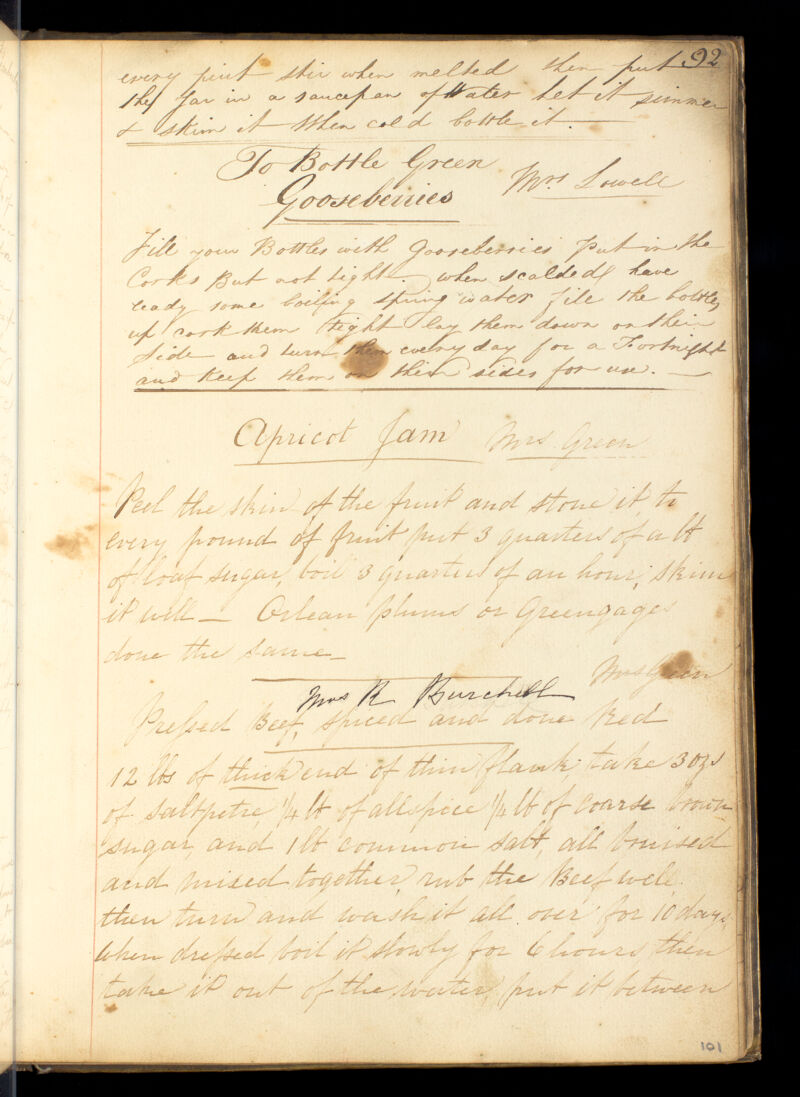 92
every pint stir when melted then put
the Jar in a saucepan of Water let it simmer
& skim it When cold bottle it. —
To Bottle Green
Gooseberries Mrs. Lowell
Fill your Bottles with Gooseberries Put in the
Corks But not tight. when scalded have
ready some boiling spring water file the bottles
up cork them tight lay them down on their
side and turn them every day for a Fortnight
and Keep them on their sides for use. —
Apricot Jam Mrs. Green
Peel the skin of the fruit and stone it, to
every pound of fruit put 3 quarters of a lb
of loaf sugar, boil 3 quarters of an hour, skim
it well — Orlean plums or Greengages
done the same —
Mrs Green
Mrs R Burchell
Pressed Beef, spiced and done Red
12 lbs of thick end of thin flank, take 3 ozs
of saltpetre, 1/4 lb of allspice 1/4 lb of coarse brown
sugar, and 1 lb common salt, all bruised
and mixed together, rub the Beef well
then turn and wash it all over for 10 days.
When dressed boil it slowly for 6 hours then
take it out of the water, put it between
101